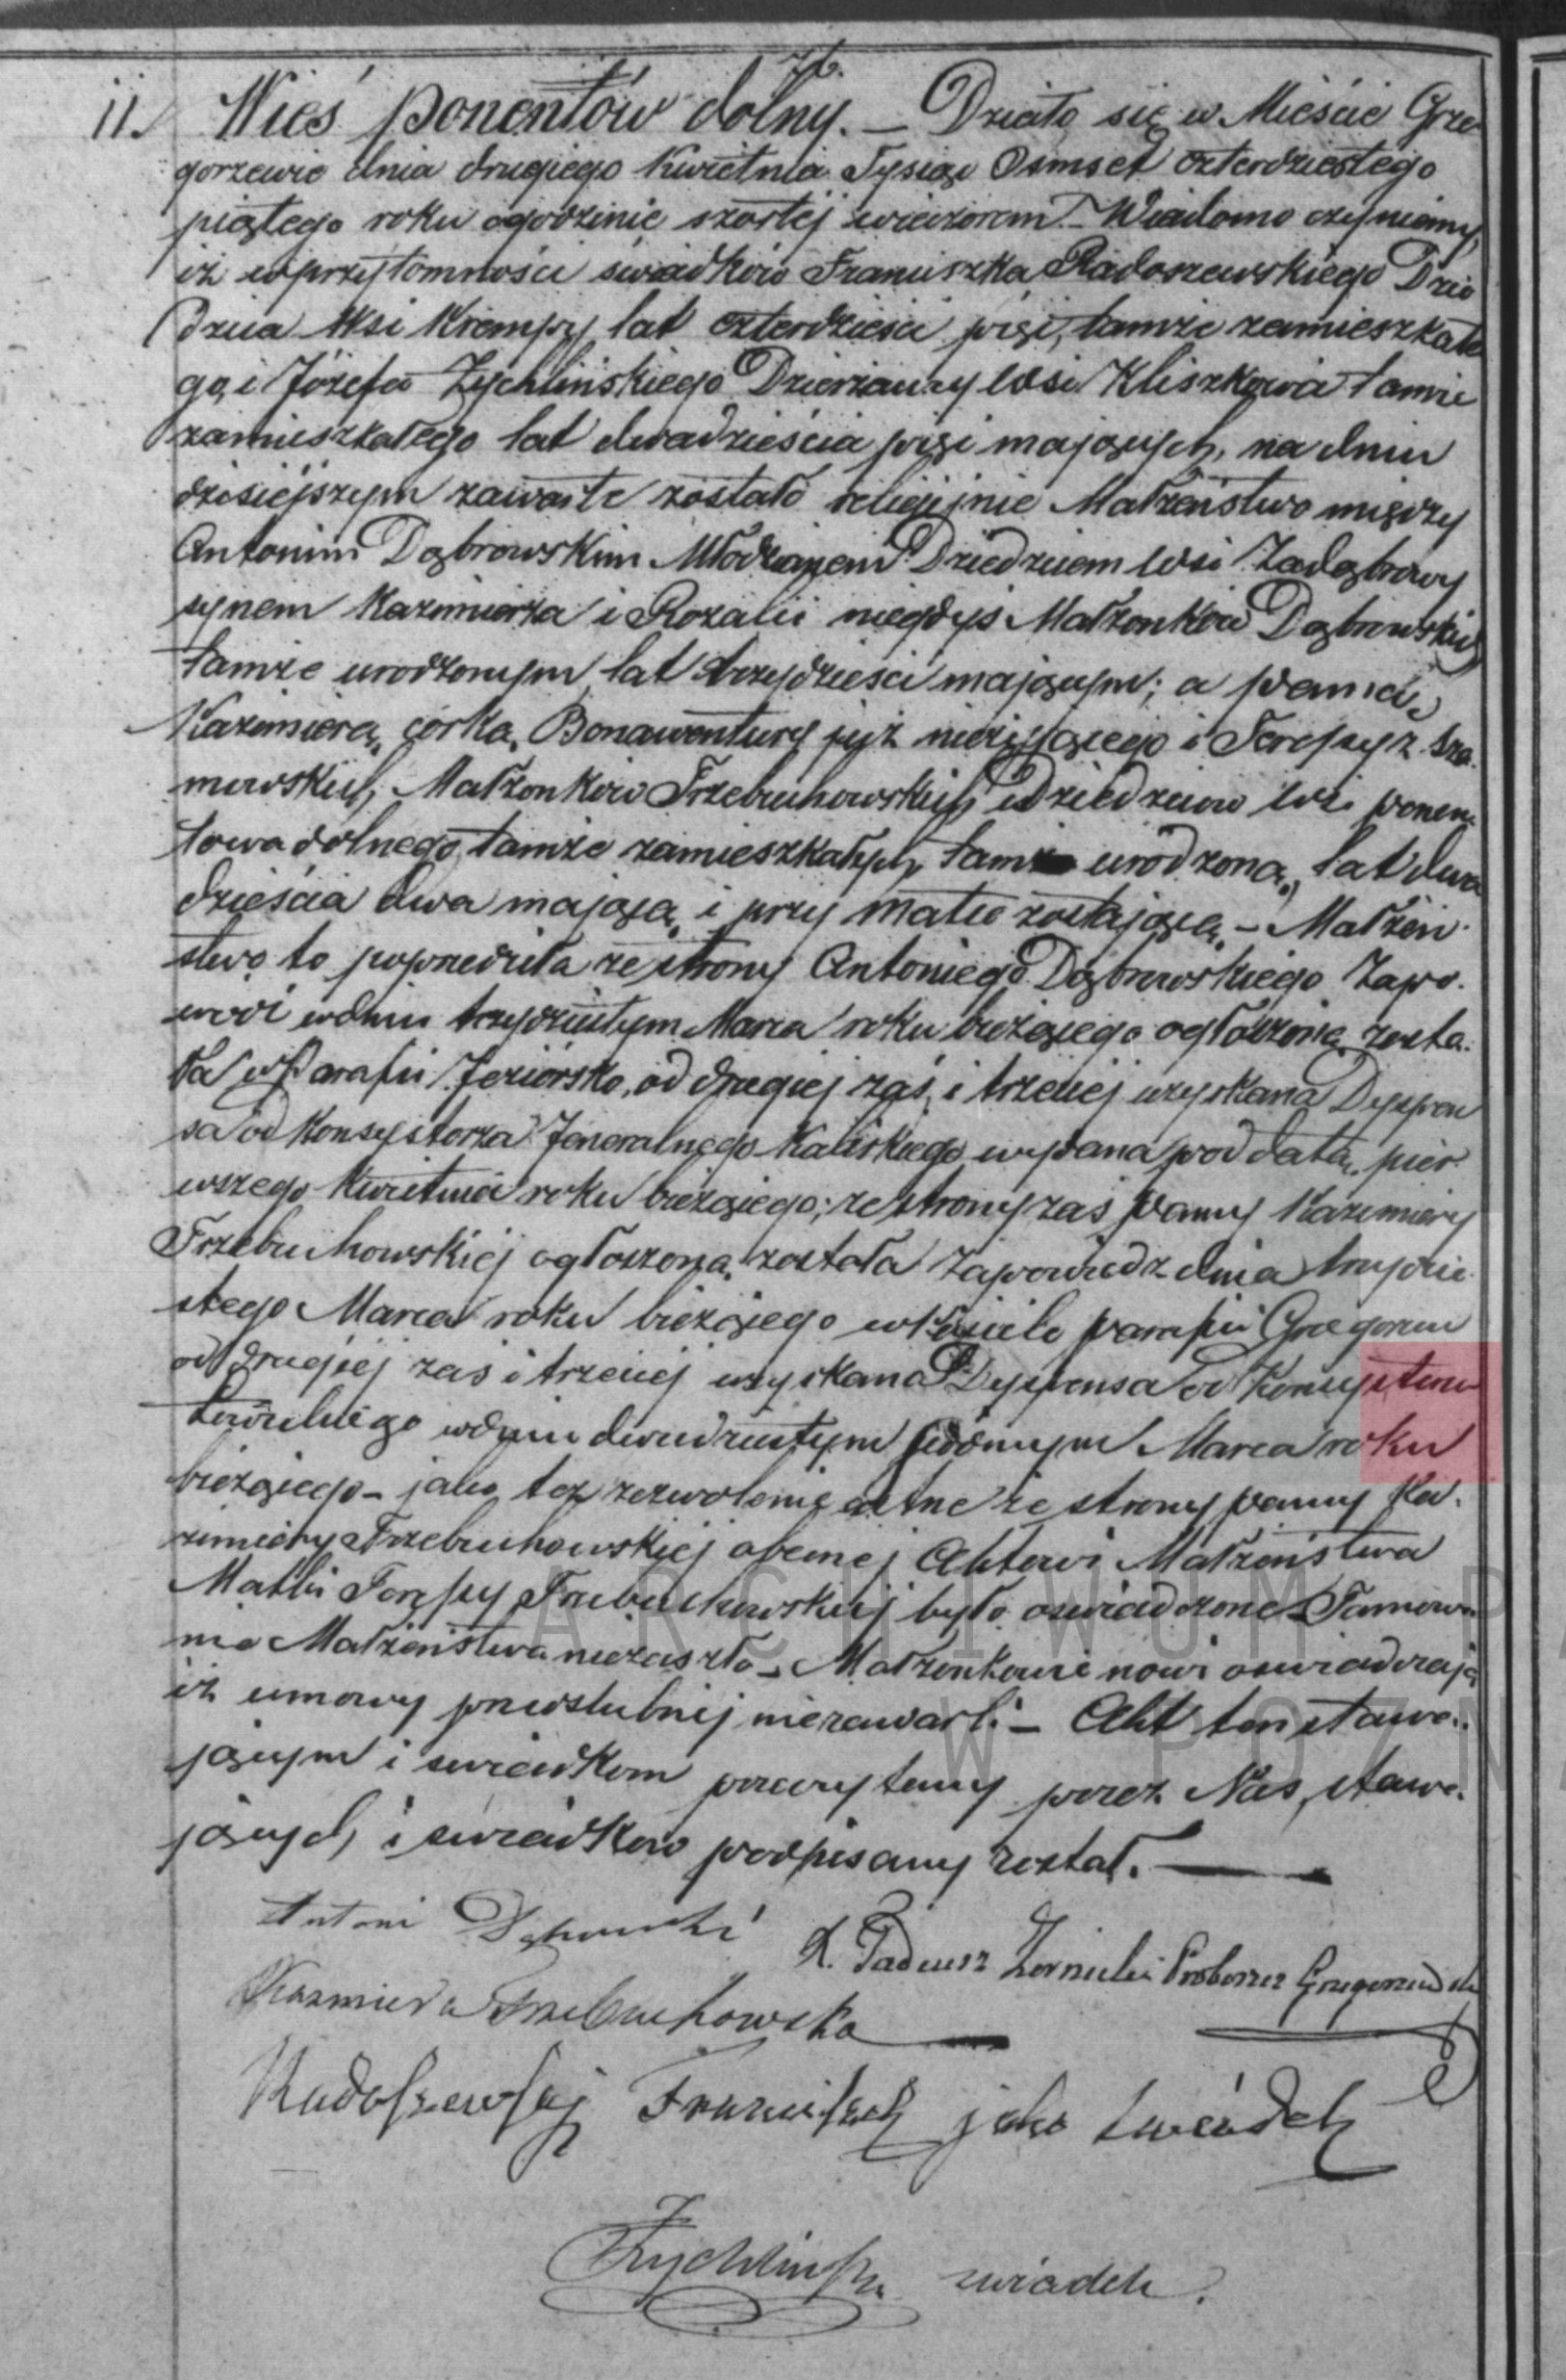 76.
11. Wieś Ponentów dolny. — Działo się w Mieście Grze-
gorzewie dnia drugiego Kwietnia Tysiąc Ośmset czterdziestego
piątego roku o godzinie szóstej wieczorem. — Wiadomo czyniemy,
iż w przytomności świadków Franciszka Radoszewskiego Dzie
dzica Wsi Krempy lat czterdzieści pięć, tamże zamieszkałe
go, i Józefa Zychlińskiego Dzierżawcy Wsi Kliszkowia tamże
zamieszkałego lat dwadzieścia pięć mających, na dniu
dzisiéjszym zawarte zostało religijnie Małżeństwo między
Antonim Dąbrowskim Młodzianem Dziedzicem Wsi Zadąbrowy
synem Kazimierza i Rozalii niegdyś Małżonków Dąbrowskich
tamże urodzonym lat trzydzieści mającym; a Panną
Kazimierą córką Bonawentury już nieżyjącego i Teressy z Sza
mowskich, Małżonków Trzebuchowskich Dziedziców Wsi Ponen
towa dolnego, tamże zamieszkałych, tamże urodzoną, lat dwa
dzieścia dwa mającą i przy matce zostającą. — Małżeń-
stwo to poprzedziła ze strony Antoniego Dąbrowskiego Zapo-
wiedź w dniu trzydziestym Marca roku bieżącego ogłoszona zosta-
ła w Parafii Jeziórsko, od drugiej zaś i trzeciej uzyskana Dyspen
sa od Konsystorza Jeneralnego Kaliskiego wydana pod datą pier-
wszego Kwietnia roku bieżącego; ze strony zaś Panny Kazimiery
Trzebuchowskiéj ogłoszona została Zapowiedź dnia trzydzie-
stego Marca roku bieżącego w Kościele parafii Grzegorzew
od drugiej zaś i trzeciej uzyskana Dyspensa od Konsystorza
w dniu dwudziestym siódmym Marca roku
bieżącego — jako też zezwolenie ustne ze strony Panny Ka-
zimiery Trzebuchowskiéj obecnej Aktowi Małżeństwa
Matki Teressy Trzebuchowskiej było oświadczone. Tamowa-
nie Małżeństwa nie zaszło — Małżonkowie nowi oświadczają
iż umowy przedślubnéj nie zawarli — Akt ten stawa-
jącym i świadkom przeczytany przez Nas, stawa-
jących, i świadków podpisany został. —
Antoni Dąbrowski
X. Tadeusz Proboszcz Grzegorzewski
Kazmiera Trzebuchowska
Radoszewski Franciszek jako świadek
Zychliński świadek.
ARCHIWUM P
W POZN